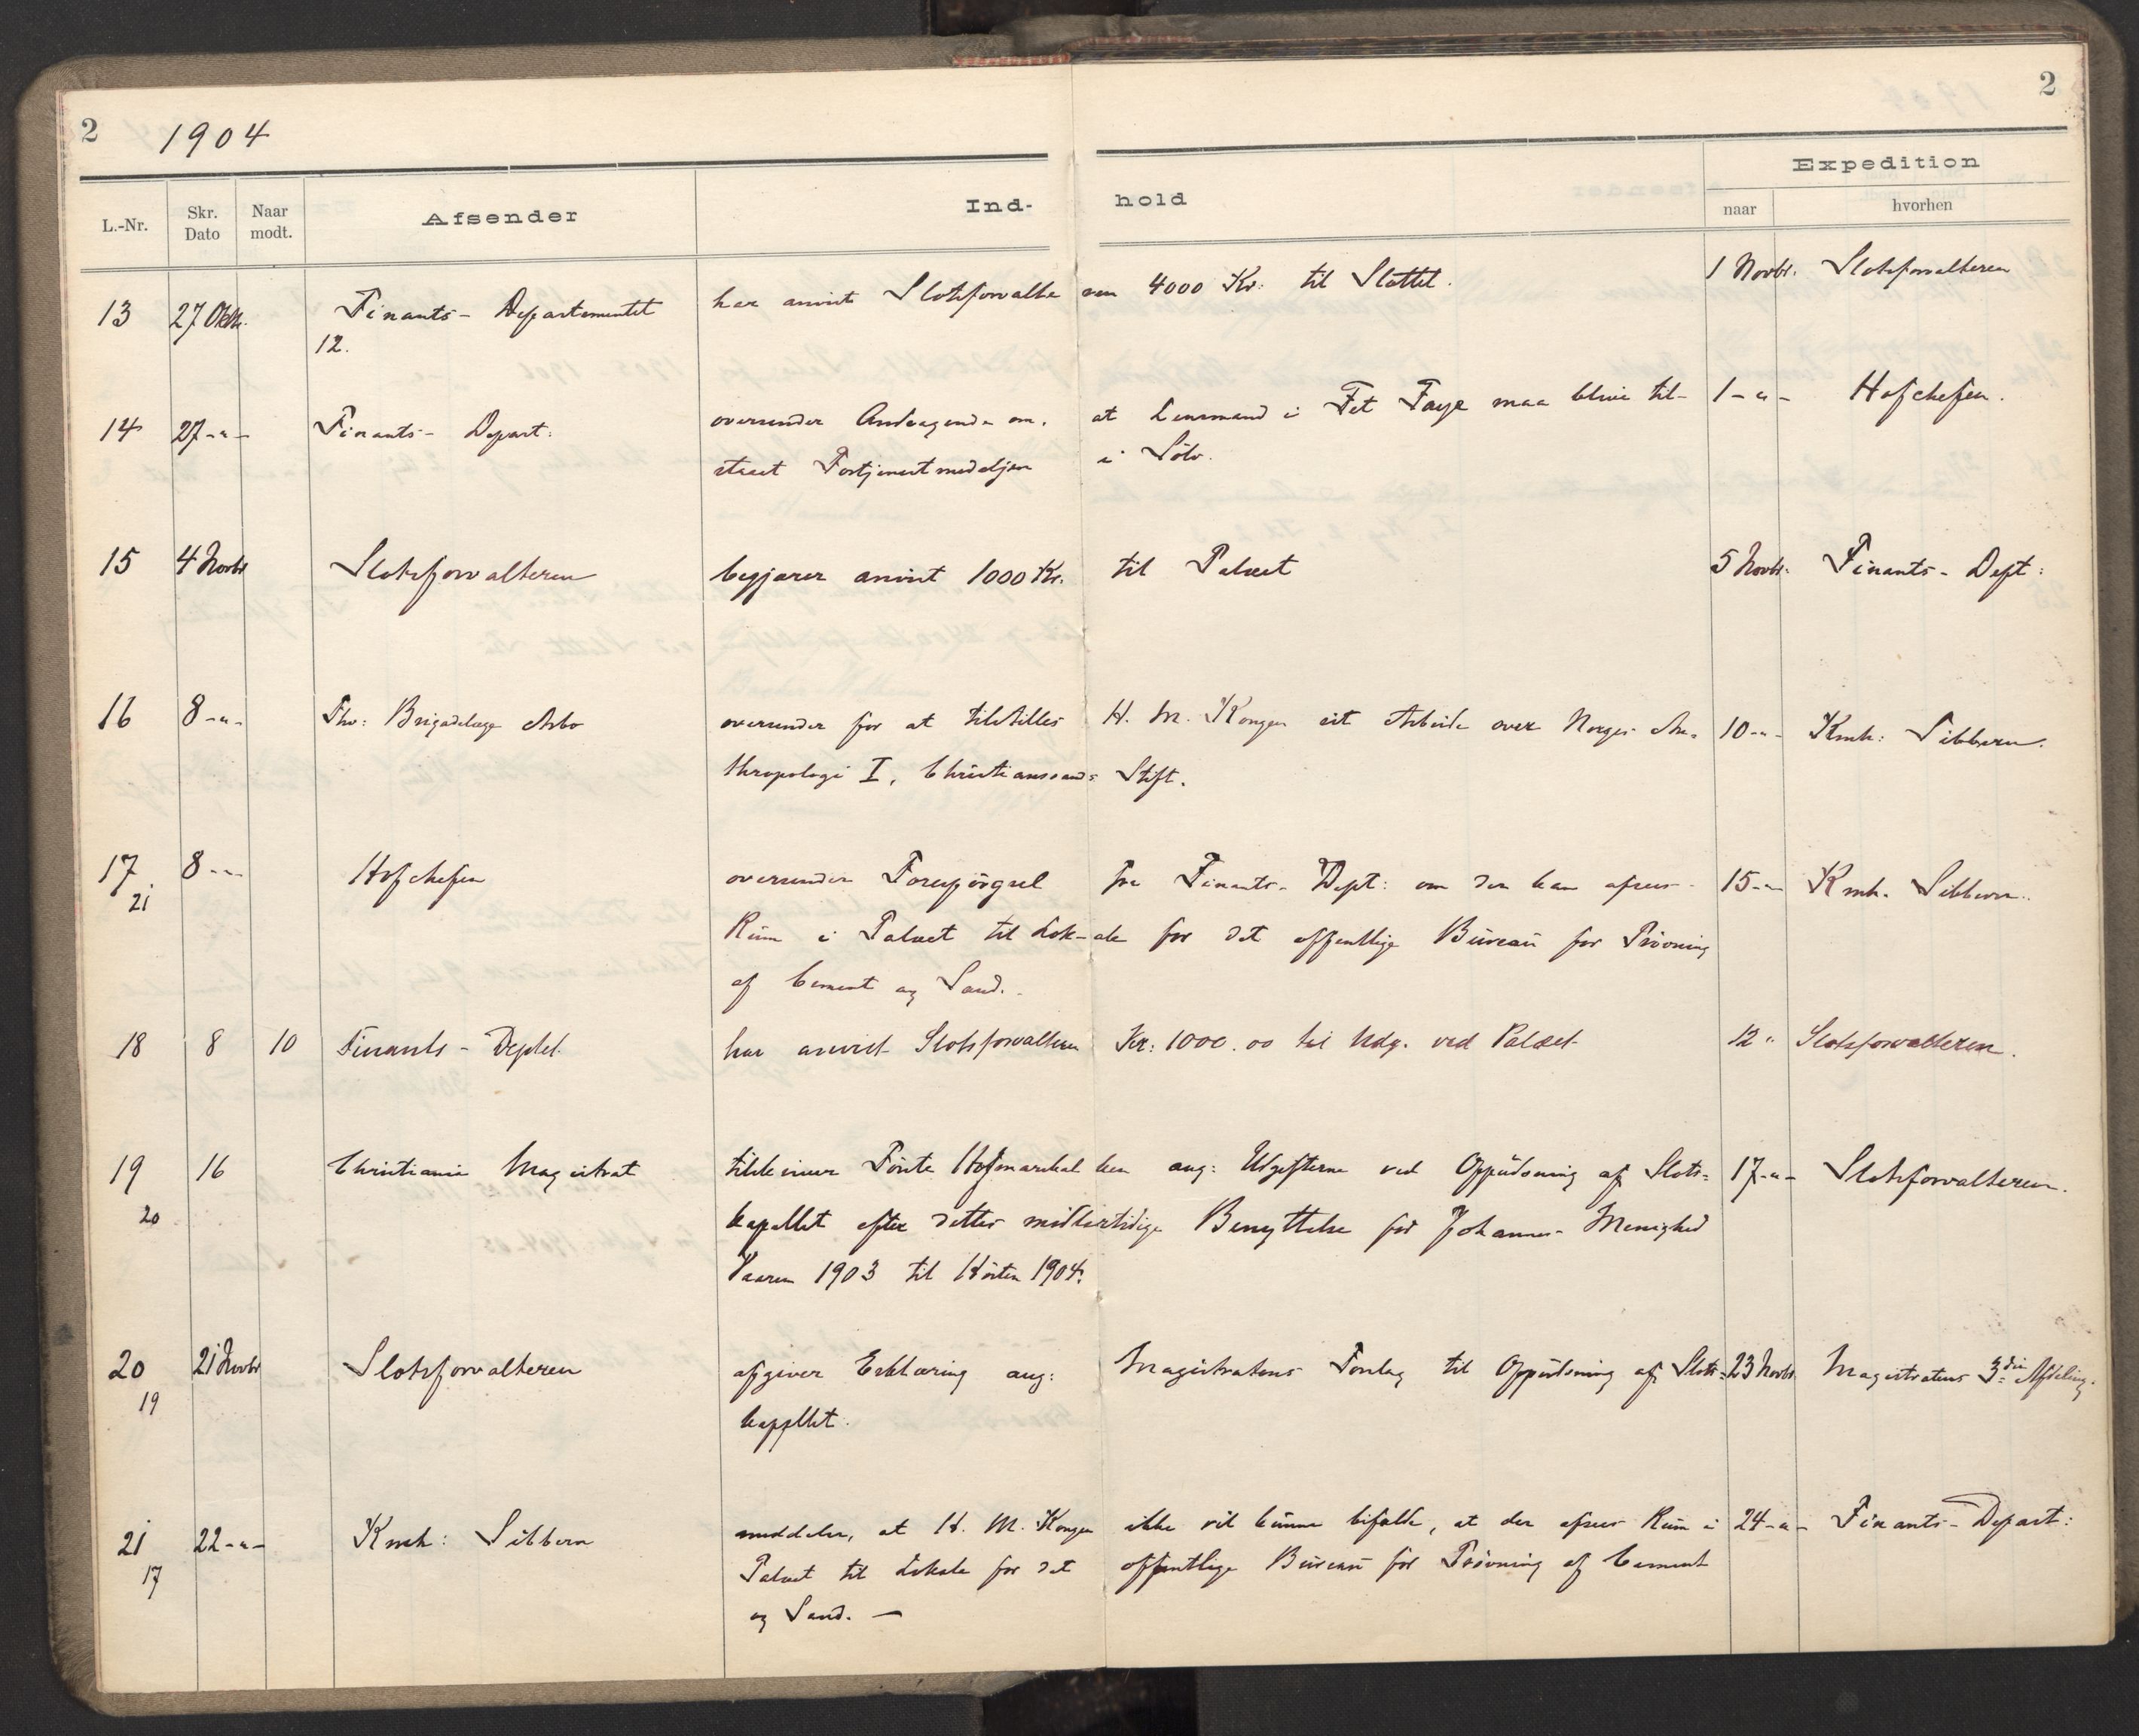 2
1904
2
L.-Nr.
Skr. Dato
Naar modt.
Afsender
Ind-
hold
Expedition
naar
hvorhen
13 27 Oktbr. Finants- Departementet har anvist Slotsforvalte ren 4000 Kr: til Slottet. 1 Novbr. Slotsforvalteren
12.
14 27-"- Finants- Depart: oversender Andragende om, at Lensmand i Fet Faye maa blive til- 1-"- Hofchefen.
staaet Fortjenstmedaljen i Sölv.
15 4 Novbr Slotsforvalteren begjærer anvist 1000 Kr. til Palæet 5 Novbr. Finants- Dept:
16 8-"- Fhv: Brigadelæge Arbo oversender for at tilstilles H. M. Kongen sit Arbeide over Norges An- 10-"- Kmh: Sibbern.
thropologi I, Christianssands Stift.
17 8-"- Hofchefen oversender Forespörgsel fra Finants- Dept: om der kan afsees 15-"- Kmh. Sibbern.
21 Rum i Palæet til Lok- ale for det offentlige Bureau for Prövning
af Cement og Sand.
18 8 10 Finants- Deptet. har anvist Slotsforvalteren Kr: 1000.00 til Udg. ved Palæet 12 " Slotsforvalteren.
19 16 Christiania Magistrat tilskriver Förste Hofmarskal ken ang: Udgifterne ved Oppudsning af Slots- 17-"- Slotsforvalteren.
20 kapellet efter dettes midlertidige Benyttelse for Johannes- Menighed
Vaaren 1903 til Hösten 1904.
20 21 Novbr Slotsforvalteren afgiver Erklæring ang: Magistratens Forslag til Oppudsning af Slots- 23 Novbr. Magistratens 3die Afdeling.
19 kapellet.
21 22-"- Kmh: Sibbern meddeler, at H. M. Kongen ikke vil kunne bifalde, at der afsees Rum i 24-"- Finants- Depart:
17 Palæet til Lokale for det offentlige Bureau for Prövning af Cement
og Sand. —